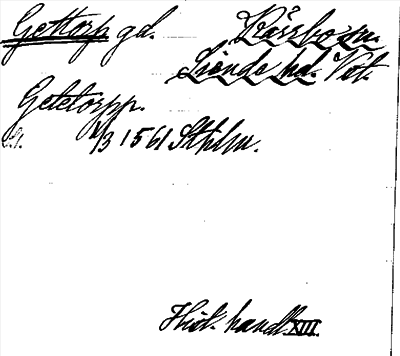 Gettorp gd. Kärrbo sn.
Siende hd. Vst.
Getetorpp.
1/3 1561 Sthlm.
Hist. handl. XIII.